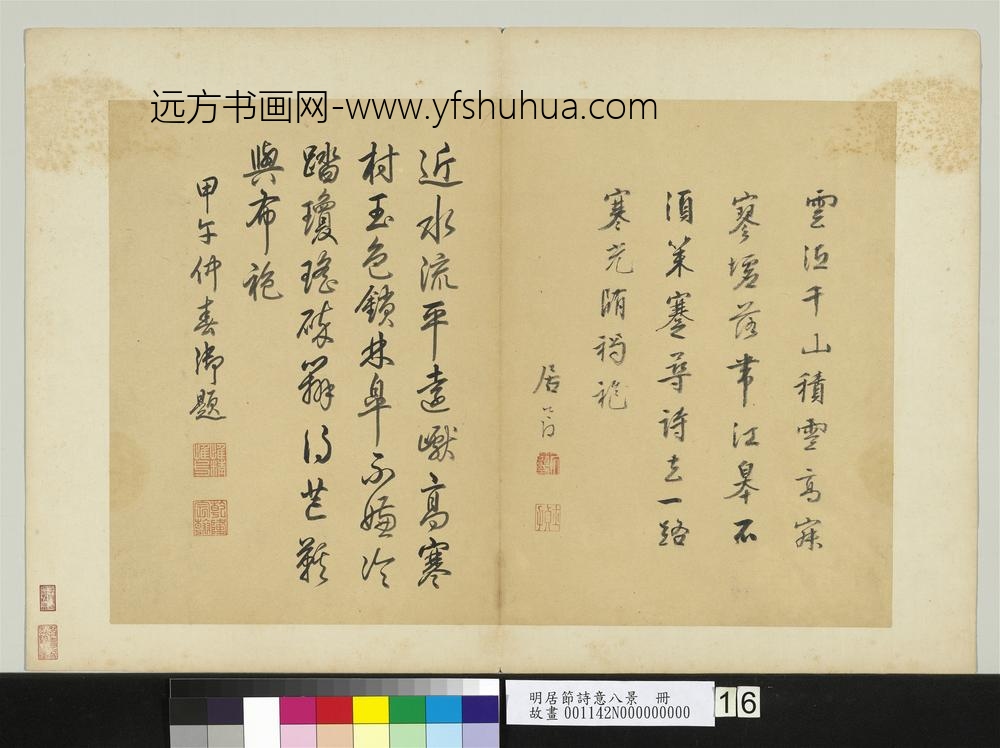 远方书画网-www.yfshuhua.com
雲迷千山積雪高寐
寥墟落帶江皋不
須策蹇尋詩去一路
寒光隨褐袍
居節
近水流平遠巘高寒
村玉色鎖林皋不嫌冷
踏瓊瑤碎辦得芒鞵
與布袍
甲午仲春御題
乾隆
明居節詩意八景 冊
故畫 001142N000000000
16